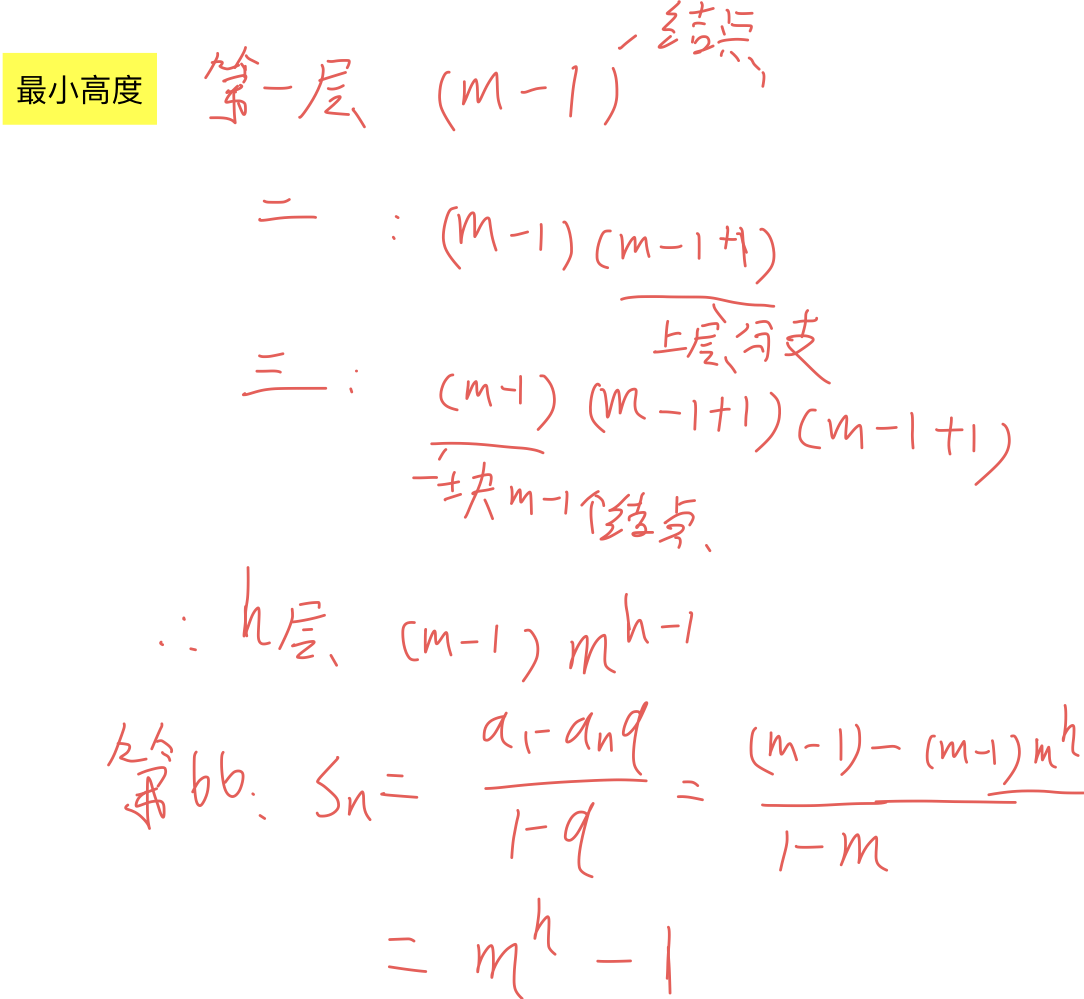 最小高度 第一层 (m-1) 结点
二 : (m-1)(m-1+1)
上层分支
三 : (m-1)(m-1+1)(m-1+1)
一块m-1个结点
∴ h层 (m-1)m^{h-1}
Sn = \frac{a_1-a_nq}{1-q} = \frac{(m-1)-(m-1)m^h}{1-m}
= m^h-1